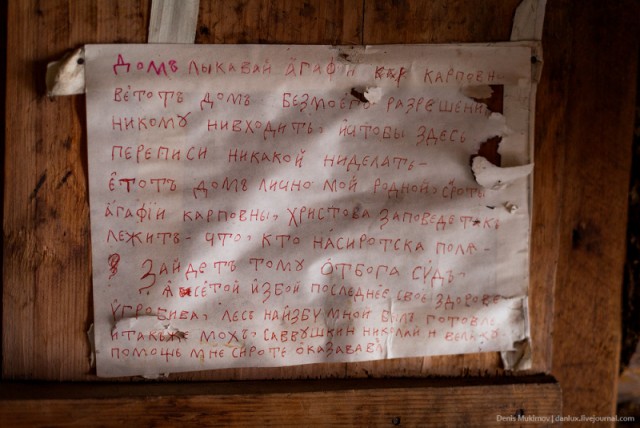 Домъ лыкавай а́гафі́и кар карповн
ве́тотъ домъ безмоего разрешени
никому нивходить, и́чтобы здесь
переписи никакой ниделать-
е́тотъ домъ лично мой родной, сироты
а́гафі́и карповны, христова заповедь такъ
лежитъ- что, кто на́сиротска поля-
зайдетъ тому о́тбога су́дъ-
я́ се́той и́збой последнее свое здоровье
угробива, лесъ наи́збу мной былъ готовле
и́также мохъ, саввушкин николай и
помощь мне сироте о́казавав
Denis Mukimov | danlux.livejournal.com